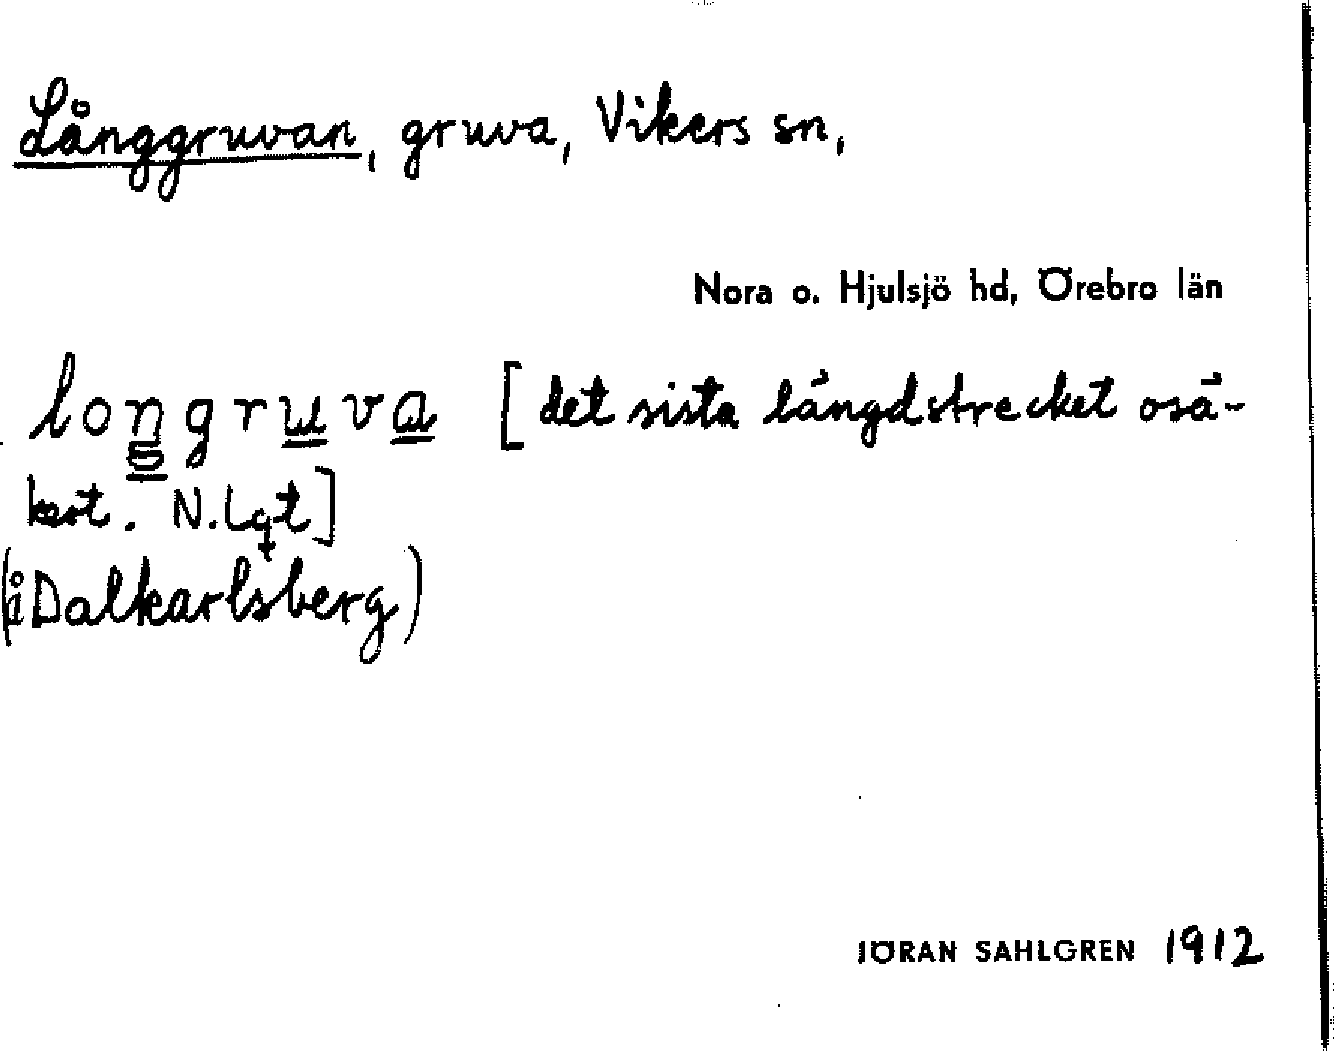 Långgruvan, gruva, Vikers sn,
Nora o. Hjulsjö hd, Örebro län
longruva [det sista längdstrecket osä-
kert. N.Lqt]
(å Dalkarlsberg)
JÖRAN SAHLGREN 1912